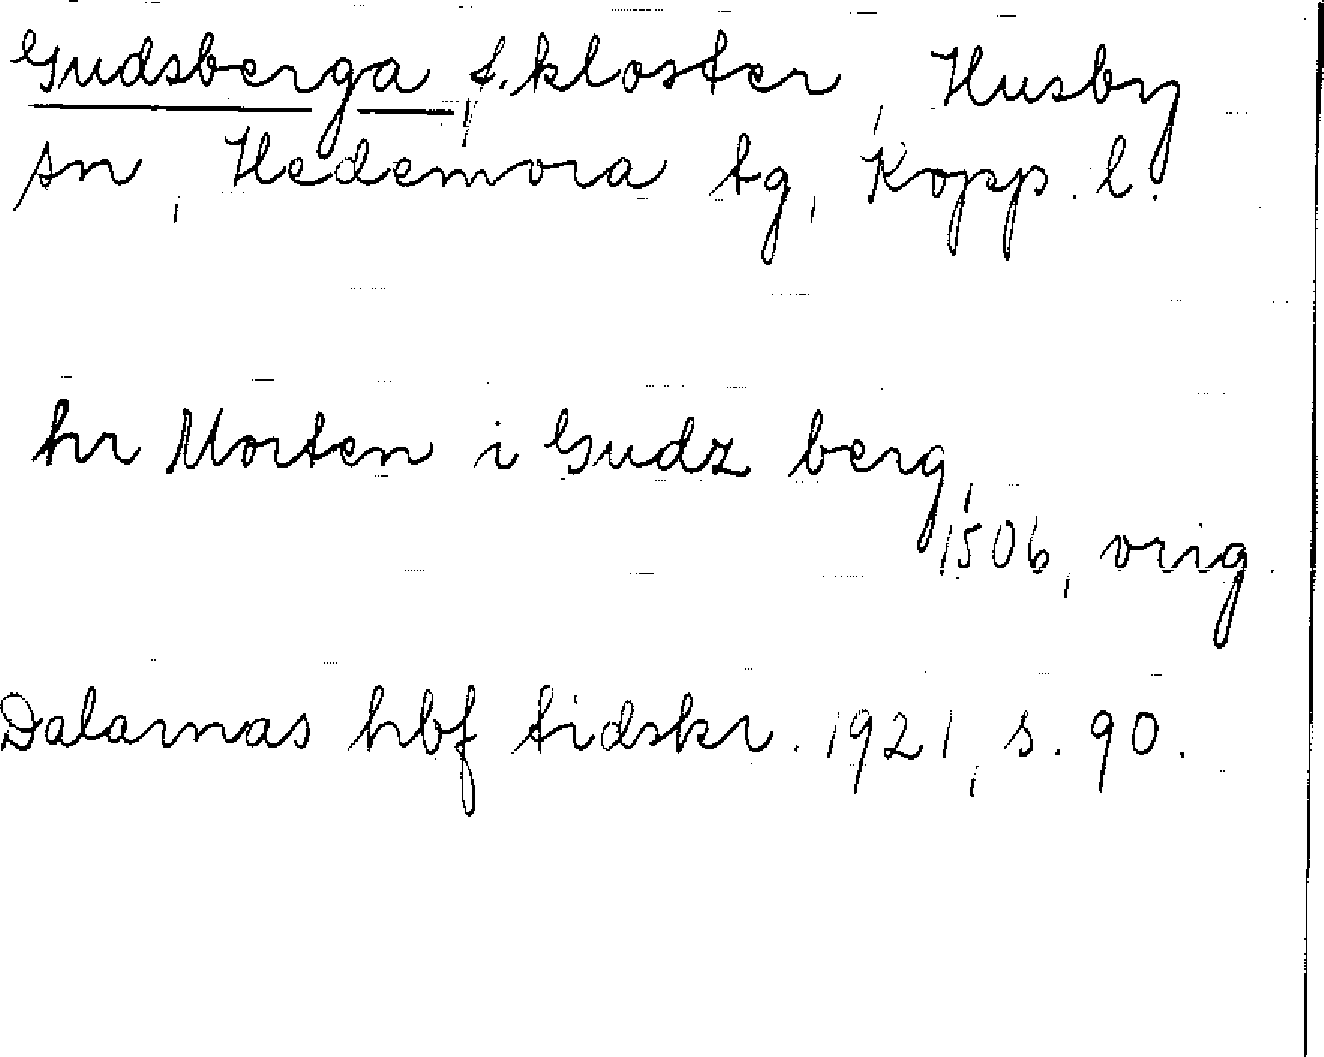 Gudsberga, f. kloster, Husby
sn, Hedemora tg, Kopp. l.
hr Morten i Gudz berg,
1506, orig.
Dalarnas hbf tidskr. 1921, s. 90.